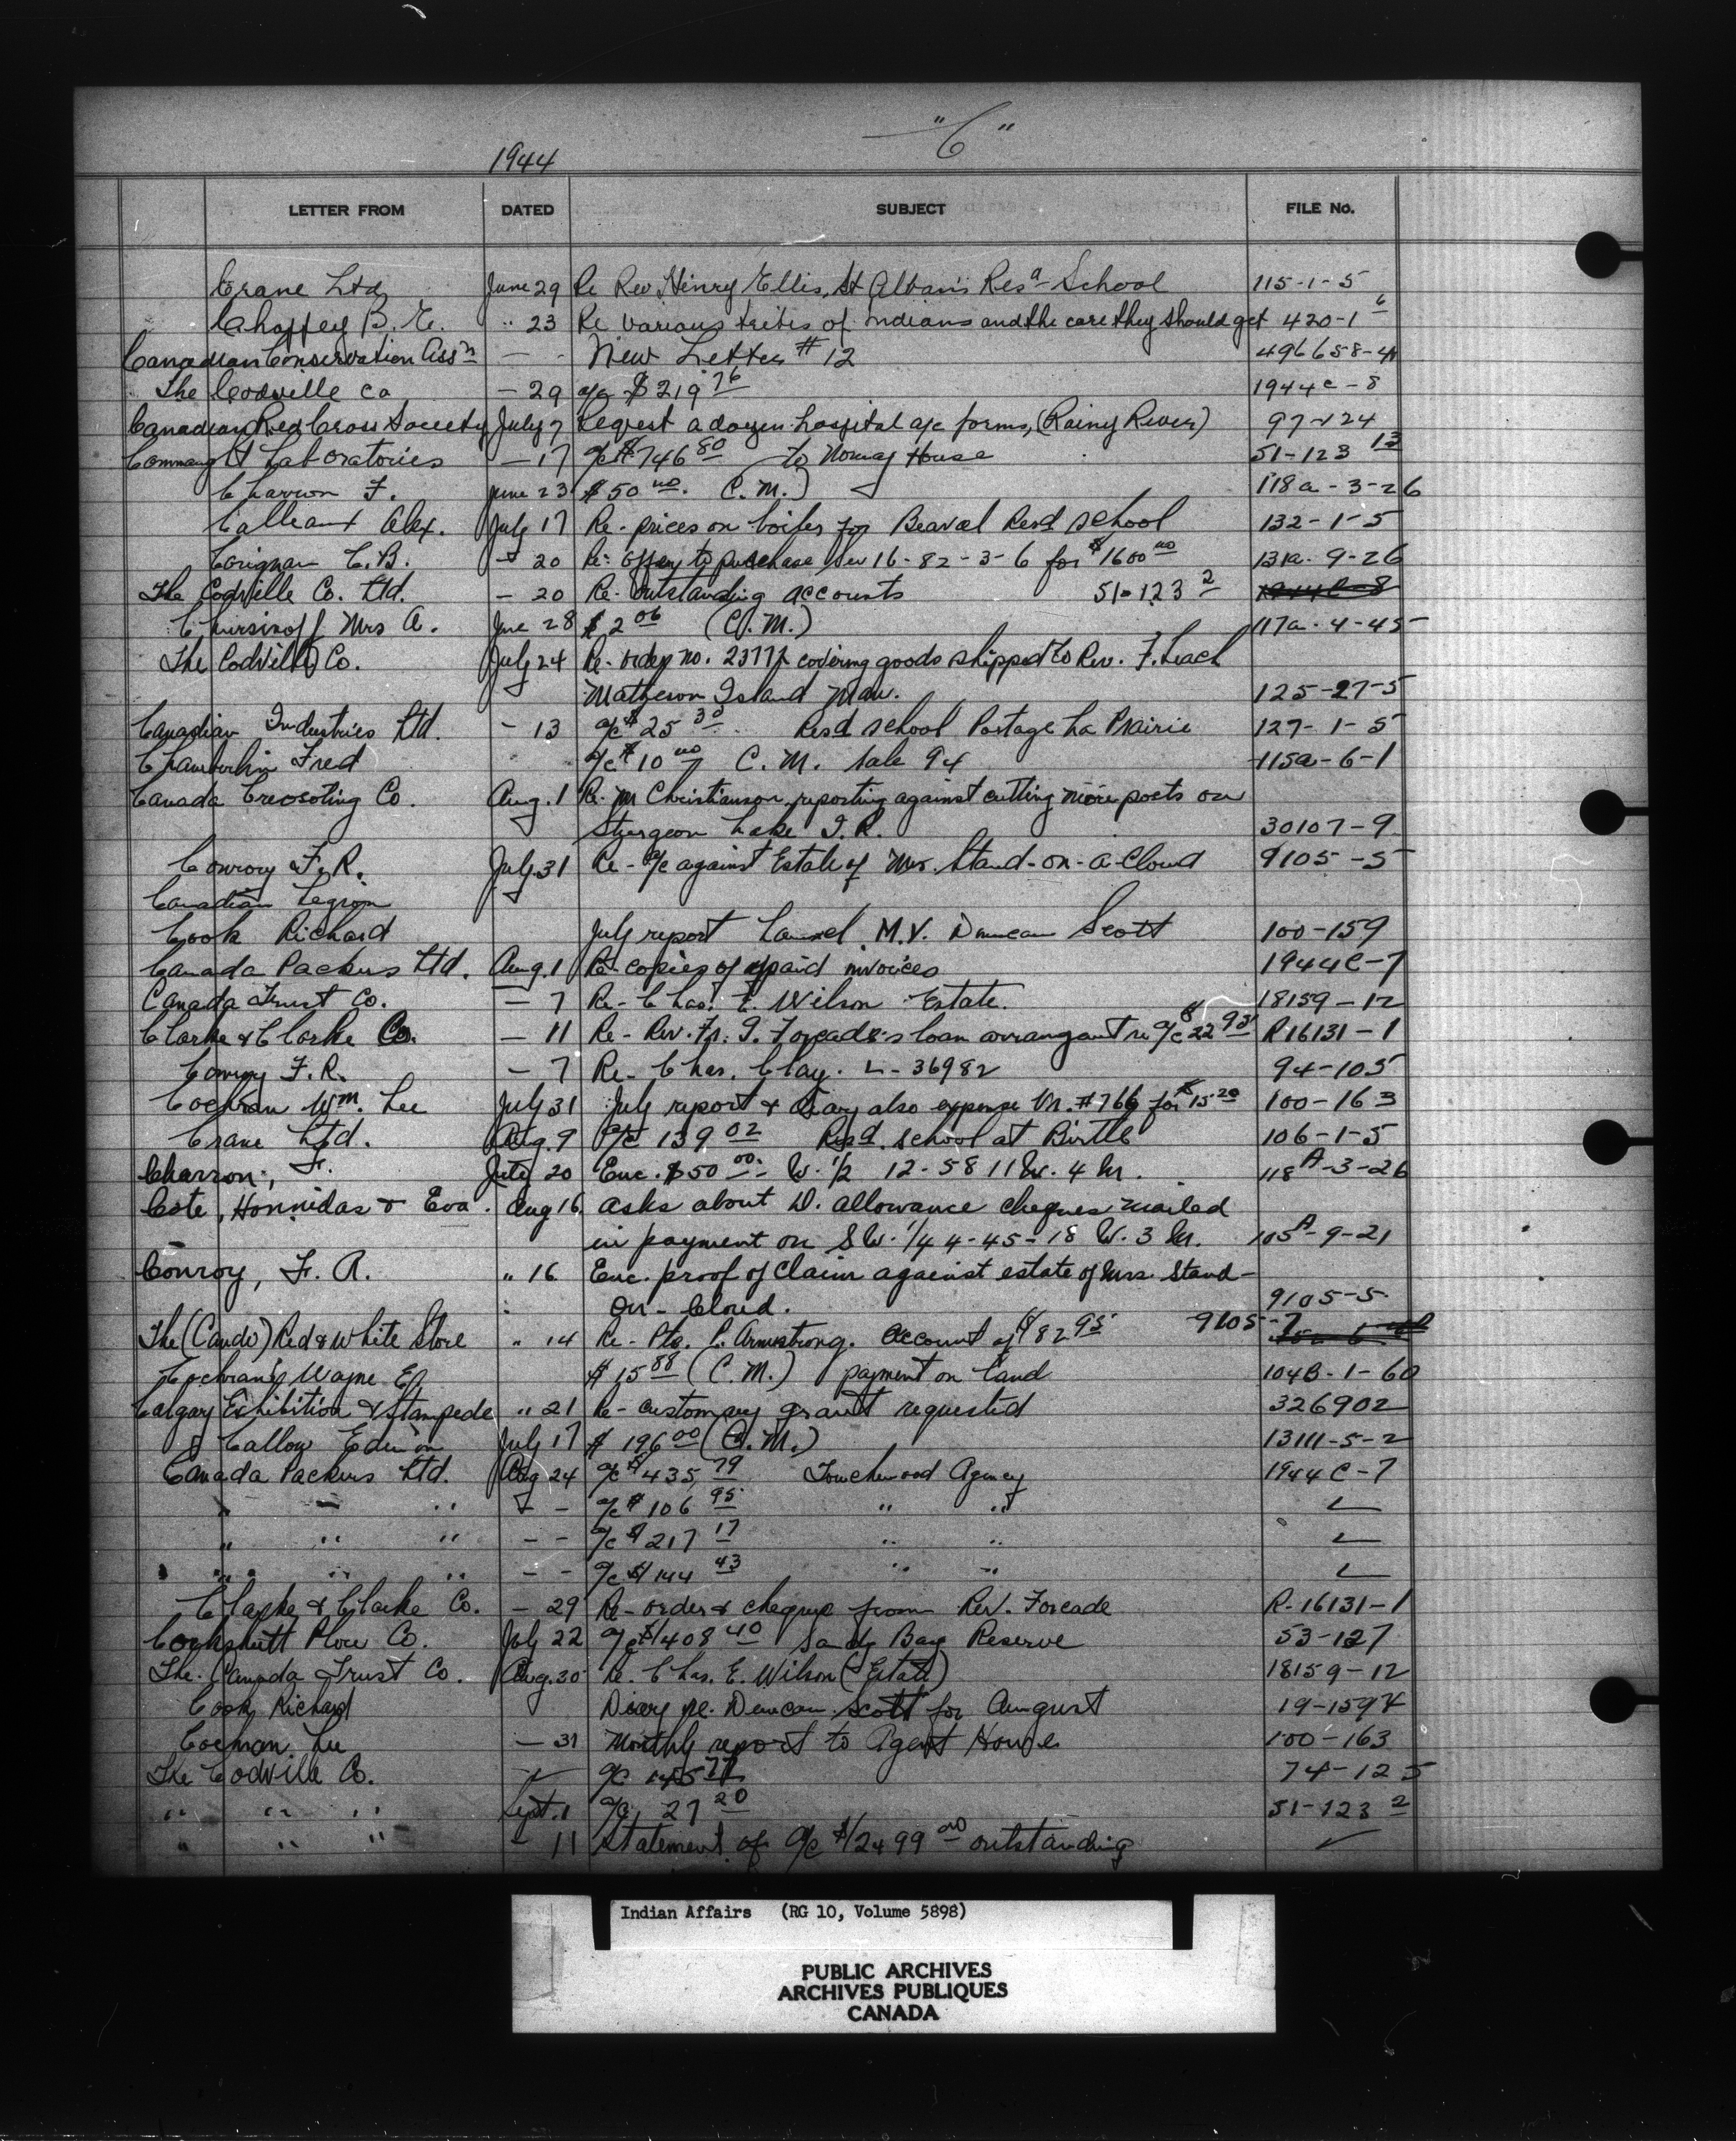 "C"
1944
LETTER FROM DATED SUBJECT FILE No.
Crane Ltd June 29 Re Rev Henry Ellis, St Alban's Res. School 115-1-5
Chaffey B. E. " 23 Re various tribes of Indians and the care they should get 420-1 6
Canadian Conservation Ass'n — - New Letter # 12 496658-4
The Codville Co — 29 a/c $219 76 1944C-8
Canadian Red Cross Society July 7 Request a dozen hospital a/c forms, (Rainy River) 97-124
Connaught Laboratories — 17 a/c $746 80 to Norway House 51-123 13
Charron F. June 23 $50 00. C.M.) 118a-3-26
Alex. July 17 Re- prices on boiler for Beaval Resd School 132-1-5
C.B. — 20 Re: offer to purchase 16-82-3-6 for $1600 00 131a-9-26
The Codville Co. Ltd. — 20 Re- Outstanding accounts 51-123 2
Mrs A. June 28 $2 06 (C.M.) 117a-4-45
The Codville Co. July 24 Re- order no. covering goods shipped to Rev. F. Leach
Matheson Island Man. 125-27-5
Canadian Industries Ltd. - 13 a/c $25 30 Resd school Portage La Prairie 127-1-5
Chamberlin Fred a/c $10 00 C.M. Sale 94 115a-6-1
Canada Creosoting Co. Aug. 1 Re- M Christianson reporting against cutting more posts on
Sturgeon Lake I.R. 30107-9
Conroy F.R. July 31 Re- a/c against Estate of Mrs. Stand-on-a-Cloud 9105-5
Canadian Legion
Cook Richard July report M.V. Duncan Scott 100-159
Canada Packers Ltd. Aug. 1 Re- copies of paid invoices 1944C-7
Canada Trust Co. — 7 Re- Chas. E. Wilson Estate. 18159-12
Clarke & Clarke Co. — 11 Re- Rev. Fr. Forcade's loan re a/c $22 95 R16131-1
Conroy F.R. — 7 Re- Chas. Clay. L-36982 94-105
Cochran Wm. Lee July 31 July report & diary also expense Vr. #766 for $15 20 100-163
Crane Ltd. Aug. 9 a/c 139 02 Resd. school at Birtle 106-1-5
Charron, F. July 20 Enc. $50 00.- W. 1/2 12-58 11 W. 4 M. 118A-3-26
Cote, Honnidas & Eva. Aug 16 Asks about D. allowance cheques mailed
in payment on S.W. 1/4 4-45-18 W. 3 M. 105A-9-21
Conroy, F. R. " 16 Enc. proof of claim against estate of Mrs. Stand-
On-Cloud. 9105-5
The (Cando) Red & White Store " 14 Re- Pte. Armstrong. Account of $82 95 9105-7
Cochrane Wayne E. $15 88 (C.M.) payment on land 104B-1-60
Calgary Exhibition & Stampede " 21 Re- customary grant requested 326902
Callow July 17 $196 00 (C.M.) 13111-5-2
Canada Packers Ltd. Aug 24 a/c $435 79 Touchwood Agency 1944C-7
" " " - - a/c $106 95 " " ✓
" " " - - a/c $217 17 " " ✓
" " " - - a/c $144 43 " " ✓
Clarke & Clarke Co. — 29 Re- order & cheque from Rev. Forcade R-16131-1
Cockshutt Plow Co. July 22 a/c $1408 40 Sandy Bay Reserve 53-127
The Canada Trust Co. Aug. 30 Re. Chas. E. Wilson (Estate) 18159-12
Cook Richard Diary re. Duncan Scott for August 19-159
Lee — 31 Monthly report to Agent 100-163
The Codville Co. a/c 145 77 74-125
" " " Sept. 1 a/c 27 20 51-123 2
" " " - 11 Statement of a/c $12499 00 outstanding ✓
Indian Affairs (RG 10, Volume 5898)
PUBLIC ARCHIVES
ARCHIVES PUBLIQUES
CANADA